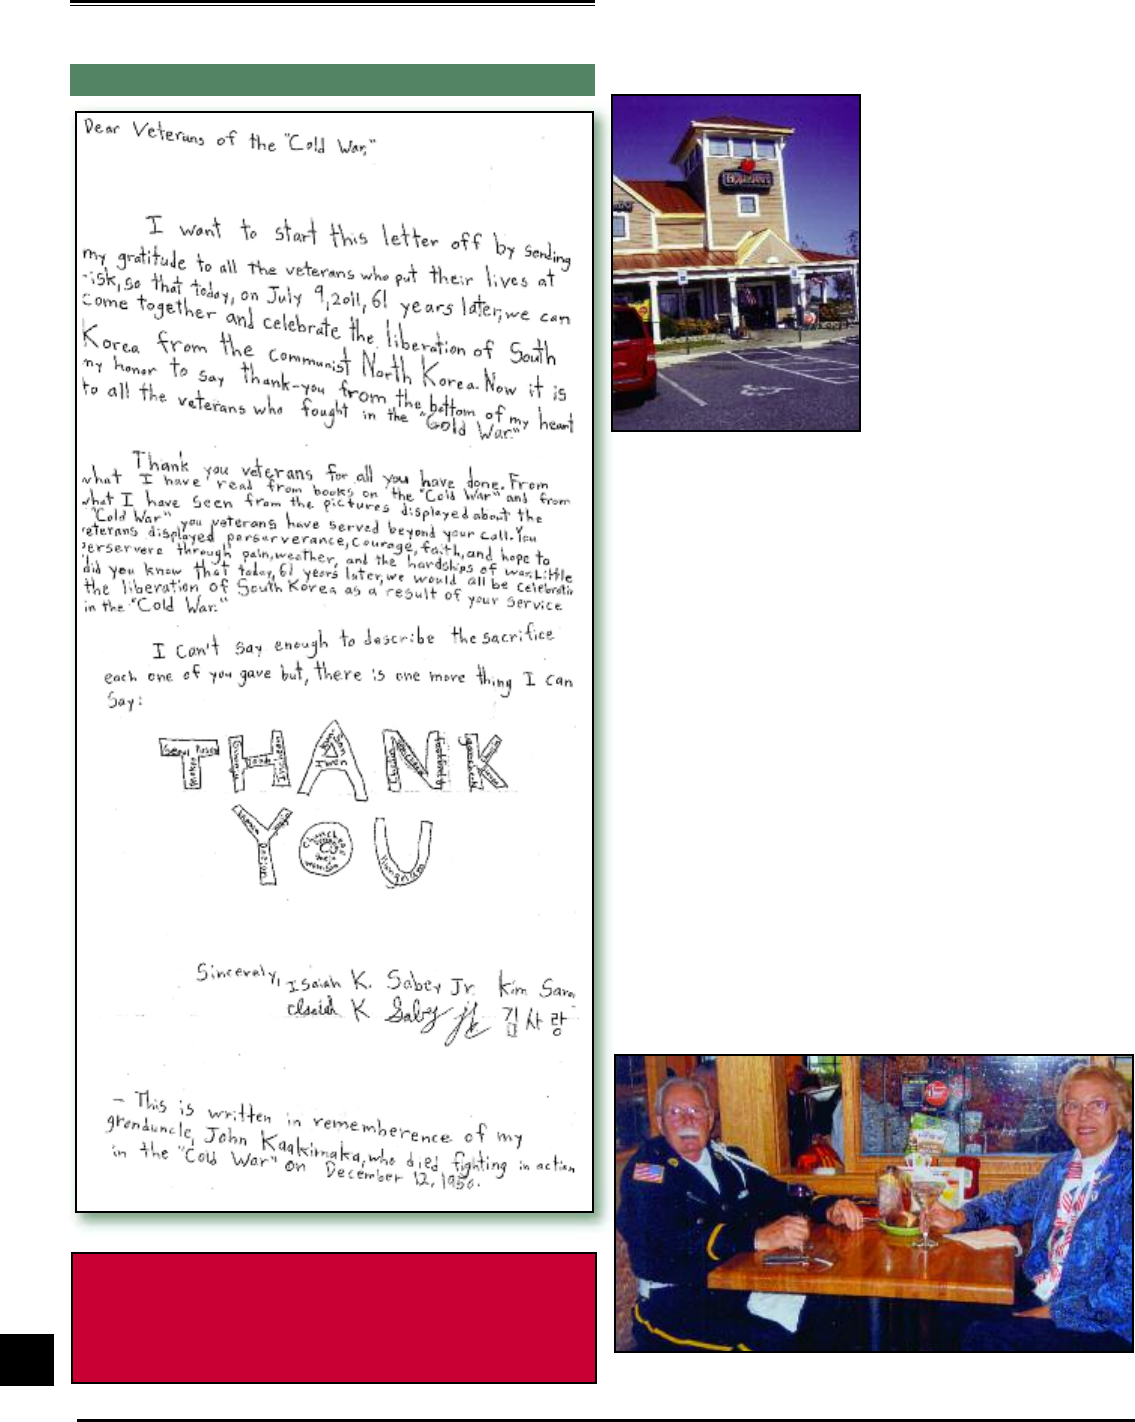 Dear Veterans of the "Cold War,"
I want to start this letter off by sending
my gratitude to all the veterans who put their lives at
risk, so that today, on July 9, 2011, 61 years later, we can
come together and celebrate the liberation of South
Korea from the communist North Korea. Now it is
my honor to say thank-you from the bottom of my heart
to all the veterans who fought in the "Cold War."
Thank you veterans for all you have done. From
what I have read from books on the "Cold War" and from
what I have seen from the pictures displayed about the
"Cold War" you veterans have served beyond your call. You
veterans displayed perserverance, courage, faith, and hope to
perservere through pain, weather, and the hardships of war. Little
did you know that today, 61 years later, we would all be celebratin
the liberation of South Korea as a result of your service
in the "Cold War."
I can't say enough to describe the sacrifice
each one of you gave but, there is one more thing I can
say:
THANK
YOU
Sincerely, Isaiah K. Sabey Jr. Kim Sara
Isaiah K Sabey Jr 김사랑
- This is written in rememberence of my
granduncle, John Kaakimaka, who died fighting in action
in the "Cold War" on December 12, 1950.